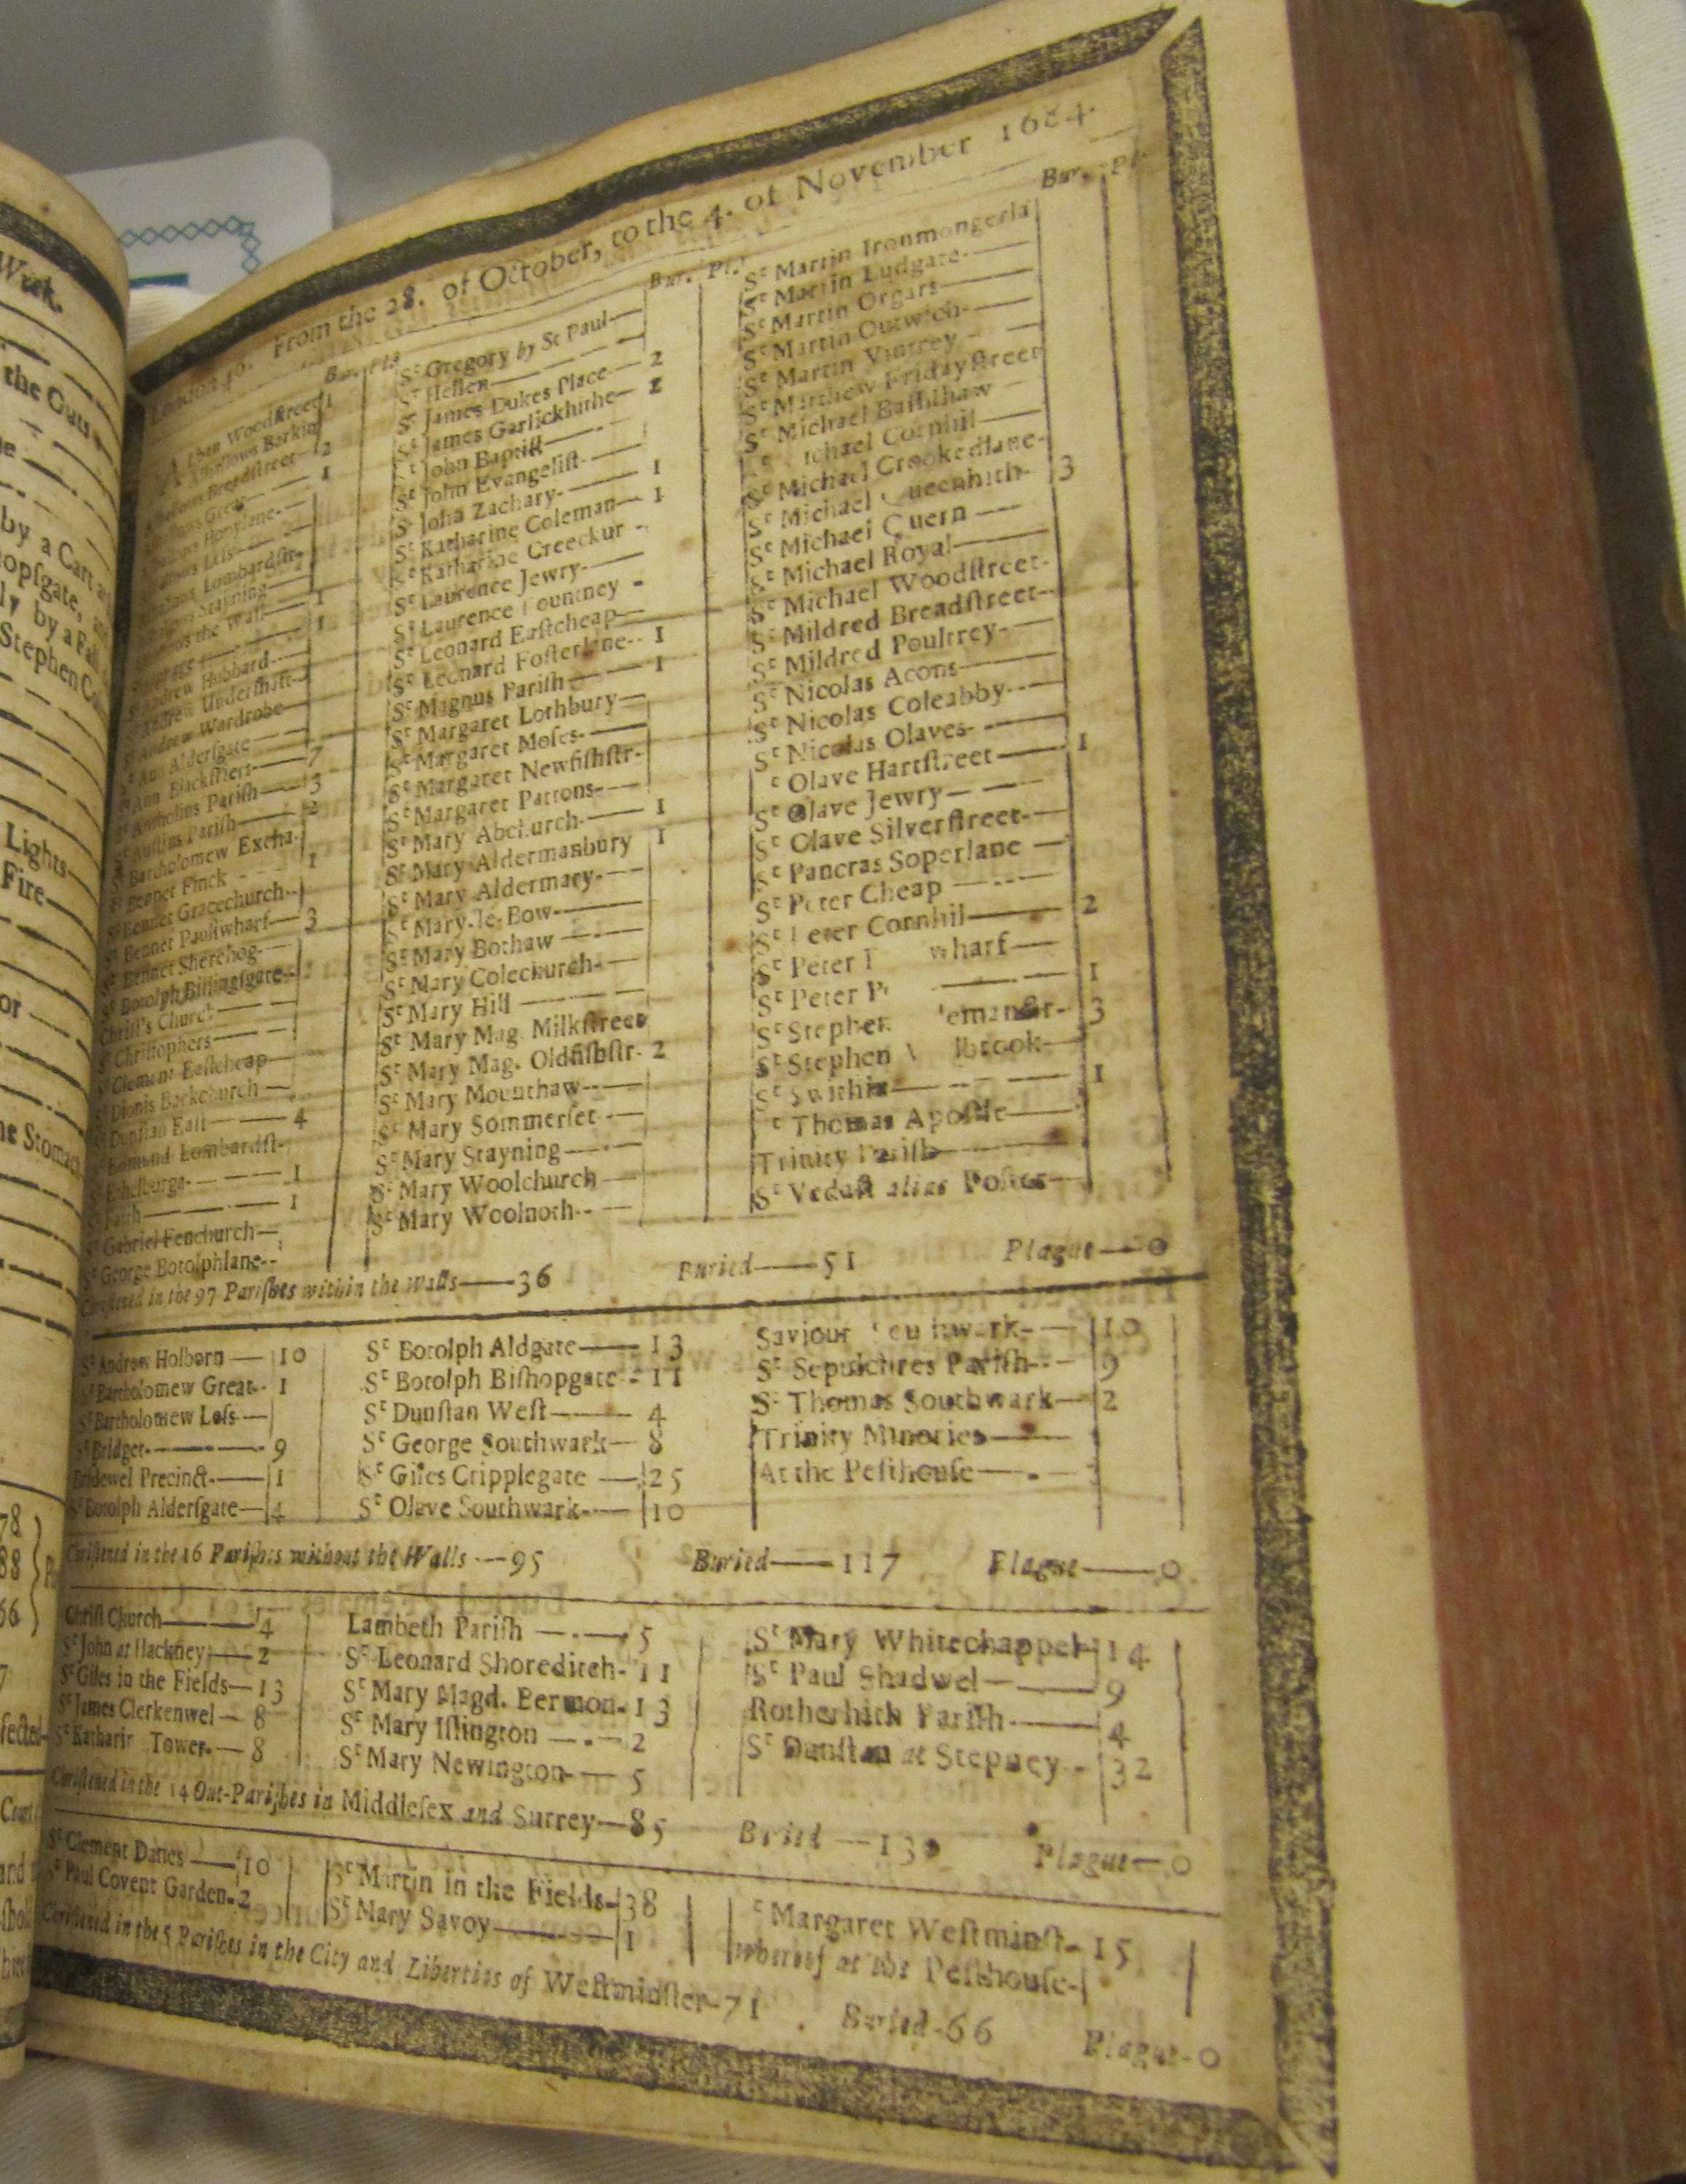 Week.
the Guts
by a Cart
Stephen
Lights
Fire
or
Stomach
78
88
66
London 46. From the 28. of October, to the 4. of November 1664.
Bur. Pl.
Alban Woodſtreet 1
Alhallows Barkin
Alhallows Breadſtreet 2
1
Honylane
Leſs
Lombardſtr
Stayning
the Wall 1
1
Sᵗ Andrew Hubbard
Sᵗ Andrew Underſhaft
Sᵗ Andrew Wardrobe
Sᵗ Ann Alderſgate
Sᵗ Ann Blackfriers 7
Sᵗ Antholins Pariſh 3
Sᵗ Auſtins Pariſh 2
Sᵗ Bartholomew Excha.
Sᵗ Bennet Finck 1
Sᵗ Bennet Gracechurch
Sᵗ Bennet Paulſwharf 3
Sᵗ Bennet Sherehog
Sᵗ Botolph Billingſgate
Chriſt's Church
Sᵗ Chriſtophers
Sᵗ Clement Eaſtcheap
Sᵗ Dionis Backchurch
Sᵗ Dunſtan Eaſt 4
Sᵗ Edmund Lombardſt.
Sᵗ Ethelburga 1
Sᵗ Faith 1
Sᵗ Gabriel Fenchurch
Sᵗ George Botolphlane
Bur. Pl.
Sᵗ Gregory by St Paul
Sᵗ Hellen
Sᵗ James Dukes Place 2
Sᵗ James Garlickhithe 2
Sᵗ John Baptiſt
Sᵗ John Evangeliſt
Sᵗ John Zachary 1
Sᵗ Katharine Coleman 1
Sᵗ Katharine Creechur
Sᵗ Laurence Jewry
Sᵗ Laurence Pountney
Sᵗ Leonard Eaſtcheap
Sᵗ Leonard Foſterlane 1
Sᵗ Magnus Pariſh 1
Sᵗ Margaret Lothbury
Sᵗ Margaret Moſes
Sᵗ Margaret Newfiſhſtr
Sᵗ Margaret Pattons
Sᵗ Mary Abchurch 1
Sᵗ Mary Aldermanbury 1
Sᵗ Mary Aldermary
Sᵗ Mary-le-Bow
Sᵗ Mary Bothaw
Sᵗ Mary Colechurch
Sᵗ Mary Hill
Sᵗ Mary Mag. Milkſtreet
Sᵗ Mary Mag. Oldfiſhſtr. 2
Sᵗ Mary Mounthaw
Sᵗ Mary Sommerſet
Sᵗ Mary Stayning
Sᵗ Mary Woolchurch
Sᵗ Mary Woolnoth
Bur. Pl.
Sᵗ Martin Ironmongerla
Sᵗ Martin Ludgate
Sᵗ Martin Orgars
Sᵗ Martin Outwich
Sᵗ Martin Vintrey
Sᵗ Matthew Fridayſtreet
Sᵗ Michael Baſſiſhaw
Michael Cornhil
Sᵗ Michael Crookedlane
Sᵗ Michael Queenhith 3
Sᵗ Michael Quern
Sᵗ Michael Royal
Sᵗ Michael Woodſtreet
Sᵗ Mildred Breadſtreet
Sᵗ Mildred Poultrey
Sᵗ Nicolas Acons
Sᵗ Nicolas Coleabby
Sᵗ Nicolas Olaves
Sᵗ Olave Hartſtreet 1
Sᵗ Olave Jewry
Sᵗ Olave Silverſtreet
Sᵗ Pancras Soperlane
Sᵗ Peter Cheap
Sᵗ Peter Cornhil 2
Sᵗ Peter wharf
Sᵗ Peter 1
Sᵗ Stephen 3
Sᵗ Stephen
Sᵗ Swithin 1
Sᵗ Thomas Apoſtle
Trinity Pariſh
Sᵗ Vedaſt alias Foſter
Chriſtened in the 97 Pariſhes within the Walls 36 Buried 51 Plague 0
Sᵗ Andrew Holborn 10
Sᵗ Bartholomew Great 1
Sᵗ Bartholomew Leſs
Sᵗ Bridget 9
Bridewel Precinct 1
Sᵗ Botolph Alderſgate 4
Sᵗ Botolph Aldgate 13
Sᵗ Botolph Biſhopgate 11
Sᵗ Dunſtan Weſt 4
Sᵗ George Southwark 8
Sᵗ Giles Cripplegate 25
Sᵗ Olave Southwark 10
Saviour Southwark 10
Sᵗ Sepulchres Pariſh 9
Sᵗ Thomas Southwark 2
Trinity Minories
At the Peſthouſe
Chriſtened in the 16 Pariſhes without the Walls 95 Buried 117 Plague 0
Chriſt Church 4
Sᵗ John at Hackney 2
Sᵗ Giles in the Fields 13
Sᵗ James Clerkenwel 8
Sᵗ Katharin Tower 8
Lambeth Pariſh 5
Sᵗ Leonard Shoreditch 11
Sᵗ Mary Magd. Bermon. 13
Sᵗ Mary Iſlington 2
Sᵗ Mary Newington 5
Sᵗ Mary Whitechappel 14
Sᵗ Paul Shadwel 9
Rotherhith Pariſh 4
Sᵗ Dunſtan at Stepney 32
Chriſtened in the 14 Out-Pariſhes in Middleſex and Surrey 85 Buried Plague 0
Sᵗ Clement Danes 10
Sᵗ Paul Covent Garden 2
Sᵗ Martin in the Fields 38
Sᵗ Mary Savoy 1
Sᵗ Margaret Weſtminſt. 15
whereof at the Peſthouſe
Chriſtened in the 5 Pariſhes in the City and Liberties of Weſtminſter 71 Buried 66 Plague 0